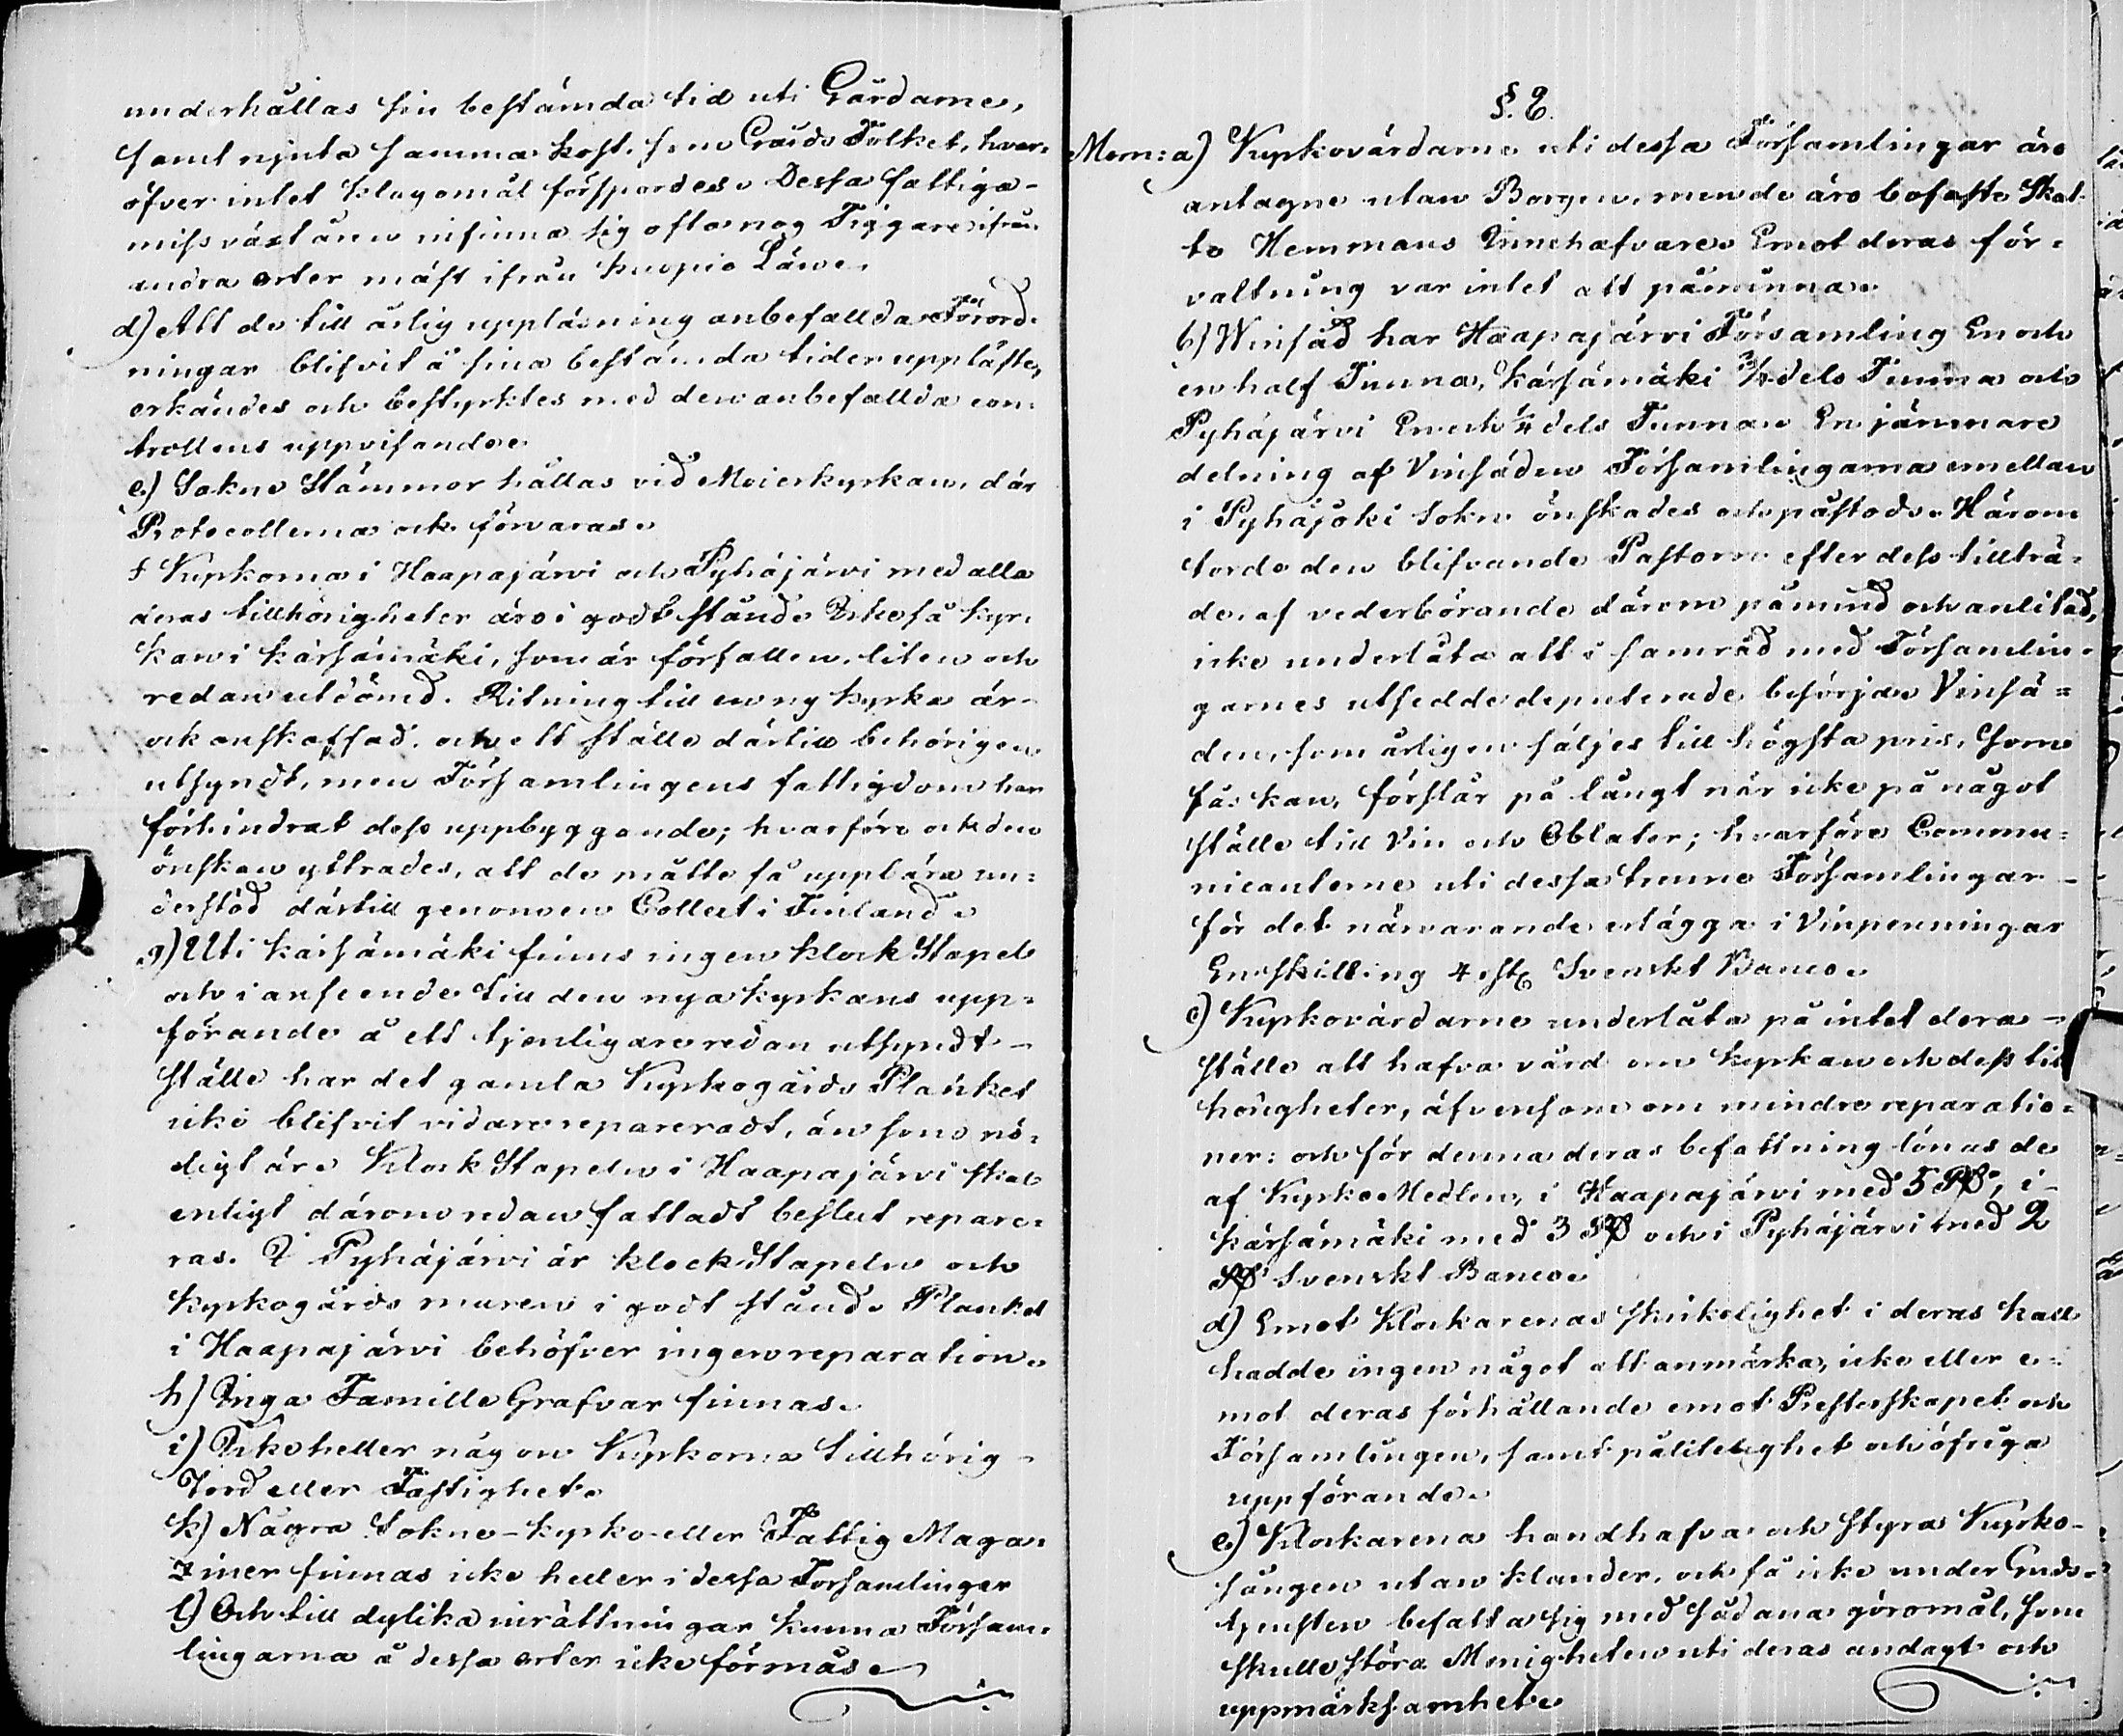 underhållas sin bestämda tid uti Gårdarne,
samt njuta samma kost, som Gårds Folket, hvar-
öfver intet klagomål förspordes. Dessa fattiga
missväxt åren infinna sig ofta nog Tiggare ifrån
andra orter mäst ifrån Kuopio Läne.
d) Att de till årlig uppläsning anbefallda Förord-
ningar blifvit å sina bestämda tider uppläste,
erkändes och bestyrktes med den anbefallda con-
trollens uppvisande.
e) Sokne Stämmor hållas vid Moderkyrkan, där
Protocollerna ock förvaras.
f Kyrkorna i Haapajärvi och Pyhäjärvi med alla
deras tillhörigheter äro i godt stånd. Icke så Kyr-
kan i Kärsämäki, som är förfallen, liten och
redan utdömd. Ritning till en ny kyrka är
ock anskaffad, och ett ställe därtill behörigen
utsyndt, men Församlingens fattigdom har
förhindrat dess uppbyggande; hvarföre ock den
önskan yttrades, att de måtte få uppbära un-
derstöd därtill genom en Collect i Finland.
g) Uti Kärsämäki finns ingen Klock Stapel
och i anseende till den nya kyrkans upp-
förande å ett tjenligare redan utsyndt
ställe har det gamla Kyrkogårds Planket
icke blifvit vidare repareradt, än som nö-
digt är. Klock Stapeln i Haapajärvi skal
enligt därom redan fattadt beslut repare-
ras. I Pyhäjärvi är klock Stapeln och
Kyrkogårds muren i godt stånd. Planket
i Haapajärvi behöfver ingen reparation.
h) Inga Famille Grafvar finnas.
i) Icke heller någon Kyrkorna tillhörig
Jord eller Fastighet.
k) Några Sokne-Kyrko- eller Fattig Maga-
ziner finnas icke heller i dessa Forsamlinger
l) Och till dylika inrättningar kunna Försam-
lingarna å dessa orter icke förmås.
§. 8.
Mom: a) Kyrkovärdarne uti dessa Församlingar äro
antagne utan Borgen, men de äro bofaste Skat-
te Hemmans Innehafvare. Emot deras för-
valtning var intet att påminna.
b) Winsäd har Haapajärvi Församling En och
en half Tunna, Kärsämäki 3/4 dels Tunna och
Pyhäjärvi En och 1/4 dels Tunna. En jämnare
delning af Vinsäden Församlingarna emellan
i Pyhäjoki Sokn önskades och påstods. Härom
torde den blifvande Pastorn efter dess tillträ-
de, af vederbörande därom påmind och anlitad,
icke underlåta att i samråd med Församlin-
garnes utsedde deputerade besörja. Vinsä-
den, som årligen säljes till högsta pris, som
fås kan, förslår på långt när icke på något
ställe till Vin och Oblater; hvarföre Commu-
nicanterne uti dessa trenne Församlingar
för det närvarande erlägga i Vinpenningar
En skilling 4 rst. Svenskt Banco.
c) Kyrkovärdarne underlåta på intet dera
ställe att hafva vård om kyrkan och dess till
hörigheter, äfvensom om mindre reparatio-
ner: och för denna deras befattning lönas de
af Kyrko Medlen, i Haapajärvi med 5 Rd, i
Kärsämäki med 3 Rd och i Pyhäjärvi med 2
Rd Svenskt Banco.
d) Emot Klockarenas skickelighet i deras kall
hadde ingen något att anmärka, icke eller e-
mot deras förhållande emot Presterskapet och
Församlingen, samt pålitelighet och öfriga
uppförande.
e) Klockarena handhafva och styra Kyrko-
sången utan klander, och få icke under Guds-
tjensten befatta sig med sådana göromål, som
skulle störa Menigheten uti deras andagt och
uppmärksamhet.